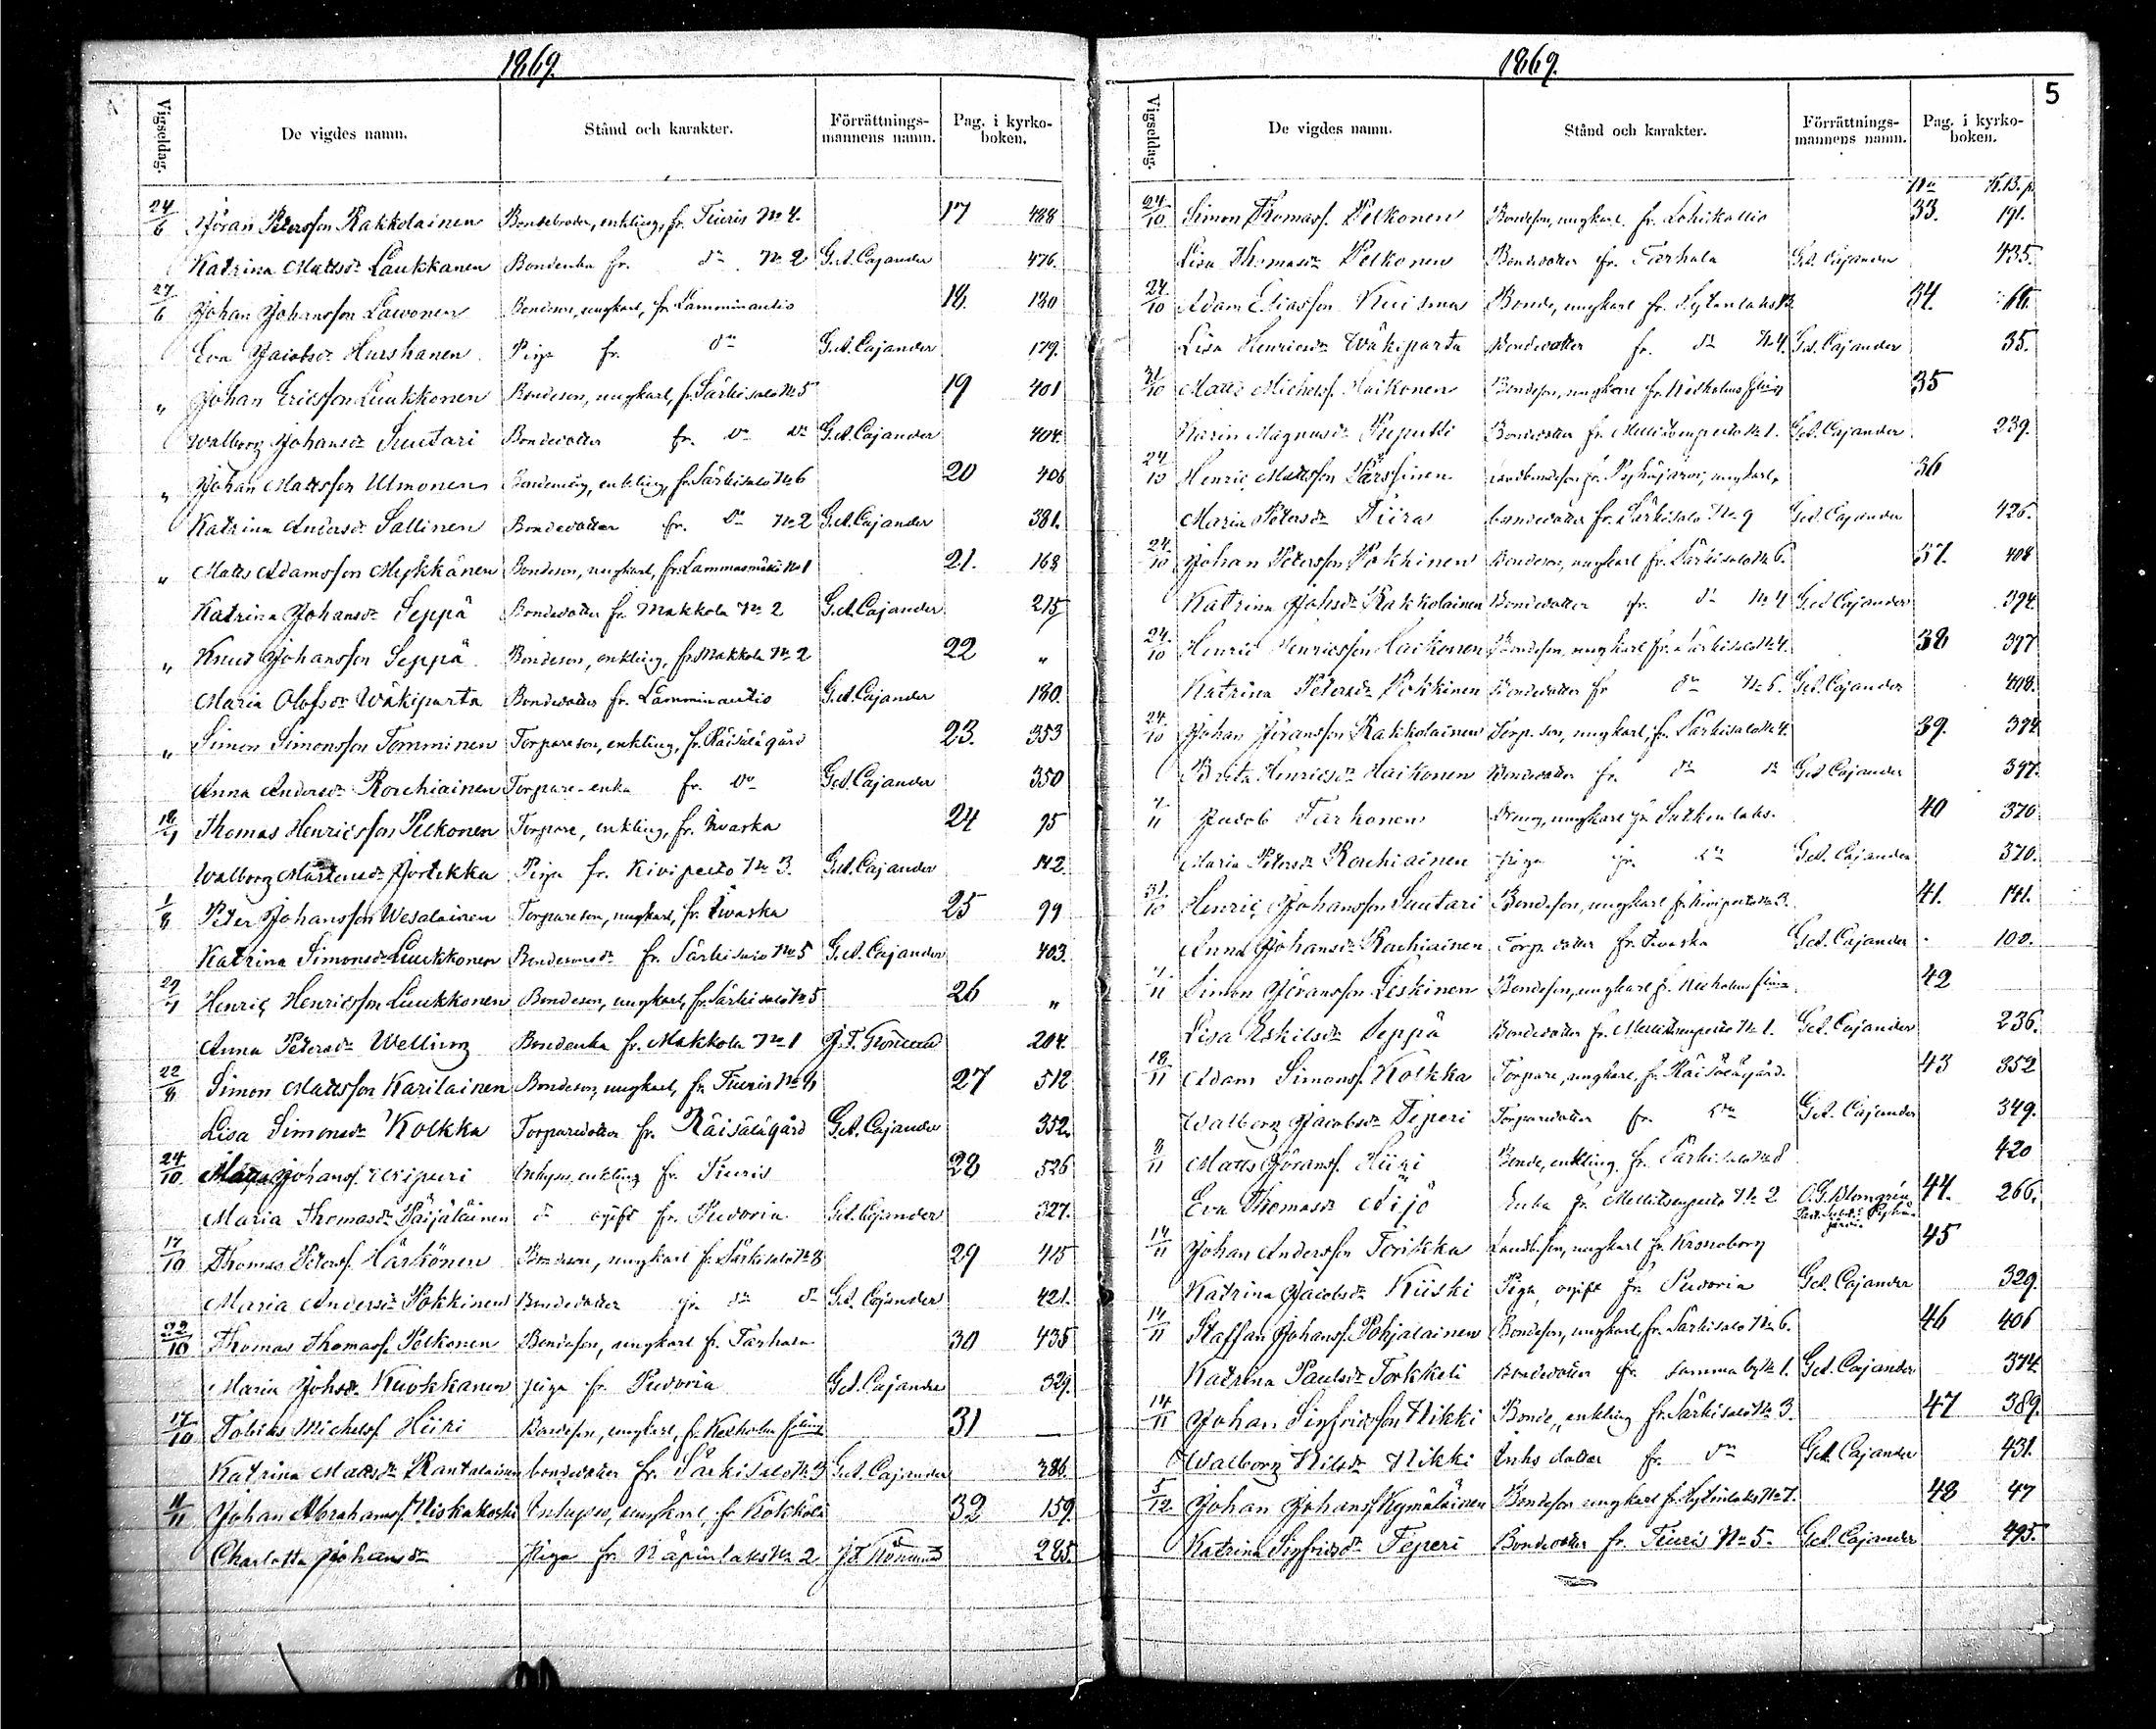 1869.
Vigseldag. De vigdes namn. Stånd och karakter. Förrättnings-mannens namn. Pag. i kyrko-boken.
24/6 Jöran Petersson Rakkolainen Bondebroder, enkling, fr. Tiuris No 4. 17 488
Katrina Mattsdr Laukkanen Bondenka fr. do No 2 G.A. Cajander 476.
27/6 Johan Johansson Lawonen Bondeson, ungkarl, fr. Lamminautio 18. 180
Eva Jacobsdr Hurskanen Piga fr. do G.A. Cajander 179.
" Johan Ericsson Luukkonen Bondeson, ungkarl, fr. Särkisalo No 5 19 401
Walborg Johansdr Suutari Bondedotter fr. do do G.A. Cajander 404.
" Johan Mattsson Ulmonen enkling, fr. Särkisalo No 6 20 406
Katrina Andersdr Sallinen Bondedotter fr. do No 2 G.A. Cajander 381.
" Matts Adamsson Mykkänen Bondeson, ungkarl, fr. Lammasmäki No 1 21. 168
Katrina Johansdr Seppä Bondedotter fr. Makkola No 2 G.A. Cajander 215
" Knut Johansson Seppä Bondeson, enkling, fr. Makkola No 2 22 "
Maria Olofsdr Wäkiparta Bondedotter fr. Lamminautio G.A. Cajander 180.
" Simon Simonsson Tomminen Torpareson, enkling, fr. Räisälägård 23. 353
Anna Andersdr Rouhiainen Torpare-enka fr. do G.A. Cajander 350
Thomas Henricsson Pelkonen Torpare, enkling, fr. Ivaska 24 95
Walborg Mårtensdr Jortikka Piga fr. Kivipelto No 3. G.A. Cajander 142.
1/8 Peter Johansson Wesalainen Torpareson, ungkarl, fr. Ivaska 25 99
Katrina Simonsdr Luukkonen Bondesonsdr fr. Särkisalo No 5 G.A. Cajander 403.
Henric Henricsson Luukkonen Bondeson, ungkarl, fr. Särkisalo No 5 26 "
Anna Petersdr Welling Bondenka fr. Makkola No 1 204.
22/8 Simon Mattsson Karilainen Bondeson, ungkarl, fr. Tiuris No 9 27 512
Lisa Simonsdr Kolkka Torparedotter fr. Räisälägård G.A. Cajander 352.
24/10. Johanss. Wiipuri Inhyses enkling fr. Tiuris 28 526
Maria Thomasdr Päijäläinen do ogift fr. Pudoria G.A. Cajander 327.
17/10 Thomas Peterss. Härkönen Bondeson, ungkarl fr. Särkisalo No 8 29 415
Maria Andersdr Pokkinen Bondedotter fr. do do G.A. Cajander 421.
22/10 Thomas Thomass. Pelkonen Bondeson, ungkarl fr. Tarhala 30 435
Maria Johsdr. Kuokkanen piga fr. Pudoria G.A. Cajander 329.
17/10 Tobias Michelss. Hiiri Bondeson, ungkarl, fr. Kexholm förs. 31 —
Katrina Mattsdr Rantalainen bondedotter fr. Särkisalo No 3 G.A. Cajander 386.
11/11 Johan Abrahamss. Niskakoski Inhyses, ungkarl, fr. Kökköle 32 159.
Charlotta Johansdr piga fr. Näpinlaks No 2 285.

1869. 5
Vigseldag. De vigdes namn. Stånd och karakter. Förrättnings-mannens namn. Pag. i kyrko-boken.
No K.B. p.
24/10 Simon Thomass. Pelkonen Bondeson, ungkarl fr. Lohikallio 33. 191.
Lisa Thomasdr Pelkonen Bondedotter fr. Tarhala G.A. Cajander 435.
24/10 Adam Eliasson Kuisma Bonde, ungkarl fr. 34.
Lisa Henricsdr Wäkiparta Bondedotter fr. do No 4. G.A. Cajander 35.
31/10 Matts Michelss. Haikonen Bondeson, ungkarl fr. Kexholms förs. 35
Karin Magnusdr Puputti Bondedotter fr. No 1. G.A. Cajander 239.
24/10 Henric Mattsson Pärssinen Landbondeson fr. Pyhäjärvi, ungkarl, 36
Maria Petersdr Tiira bondedotter fr. Särkisalo No 9 G.A. Cajander 426.
24/10 Johan Petersson Pokkinen Bondeson, ungkarl fr. Särkisalo No 6. 37. 408
Katrina Johsdr Rakkolainen Bondedotter fr. do No 4 G.A. Cajander 394.
24/10 Henric Henricsson Haikonen Bondeson, ungkarl fr. Särkisalo No 4. 38 397
Katrina Petersdr Pokkinen Bondedotter fr do No 6. G.A. Cajander 408.
24/10 Johan Jöransson Rakkolainen Torp. son, ungkarl, fr. Särkisalo No 4. 39. 394
Brita Henricsdr Haikonen Bondedotter fr. do do G.A. Cajander 397.
7/11 Jacob Tarhonen Dreng, ungkarl fr. 40 370
Maria Petersdr Rouhiainen piga fr. do G.A. Cajander 370.
31/10 Henric Johansson Suutari Bondeson, ungkarl fr. Kivipelto No 3. 41. 141.
Anna Johansdr Rouhiainen Torp. dotter fr. Ivaska G.A. Cajander 100.
7/11 Simon Jöransson Leskinen Bondeson, ungkarl fr. Kexholms förs. 42
Lisa Eskilsdr Seppä Bondedotter fr. No 1. G.A. Cajander 236.
18/11 Adam Simonss. Kolkka Torpare, ungkarl, fr. Räisälägård. 43 352
Walborg Jacobsdr Teperi Torparedotter fr. do G.A. Cajander 349.
Matts Jöranss. Hiiri Bonde, enkling fr. Särkisalo No 8 420
Eva Thomasdr Äijö Enka fr. No 2 O.G. Blomgrén 44. 266.
14/11 Johan Andersson Torikka Landb. son, ungkarl fr. Kronoborg 45
Katrina Jacobsdr Kiiski Piga, ogift fr. Pudoria G.A. Cajander 329.
14/11 Staffan Johanss. Pohjalainen Bondeson, ungkarl fr. Särkisalo No 6. 46 406
Katrina Paulsdr Torkkeli Bondedotter fr. samma by No 1. G.A. Cajander 374
14/11 Johan Sigfridsson Nikki Bonde, enkling fr. Särkisalo No 3. 47 389.
Walborg Nilsdr Nikki Inhs dotter fr. do G.A. Cajander 431.
5/12 Johan Johanss. Kymäläinen Bondeson ungkarl fr. No 7. 48 47
Katrina Sigfridsdr Teperi Bondedotter fr. Tiuris No 5. G.A. Cajander 495.